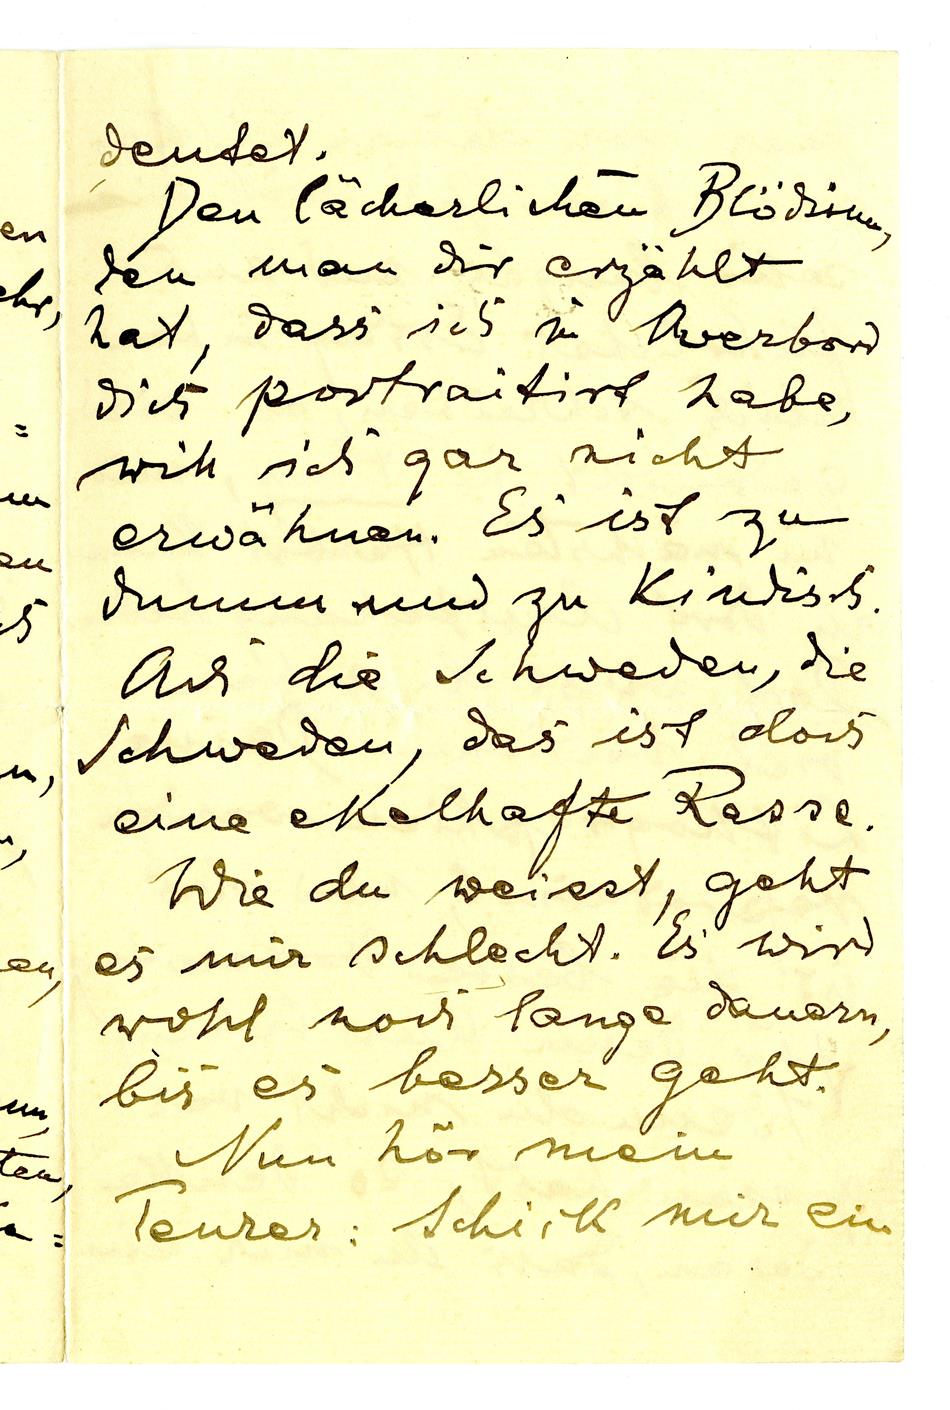 deutet.
Den lächerlichen Blödsinn,
den man dir erzählt
hat, dass ich in Overbord
dich portraitirt habe,
will ich gar nicht
erwähnen. Es ist zu
dumm und zu kindisch.
Ach die Schweden, die
Schweden, das ist doch
eine ekelhafte Rasse.
Wie du weisst, geht
es mir schlecht. Es wird
wohl noch lange dauern,
bis es besser geht.
Nun hör mein
Teurer: Schick mir ein